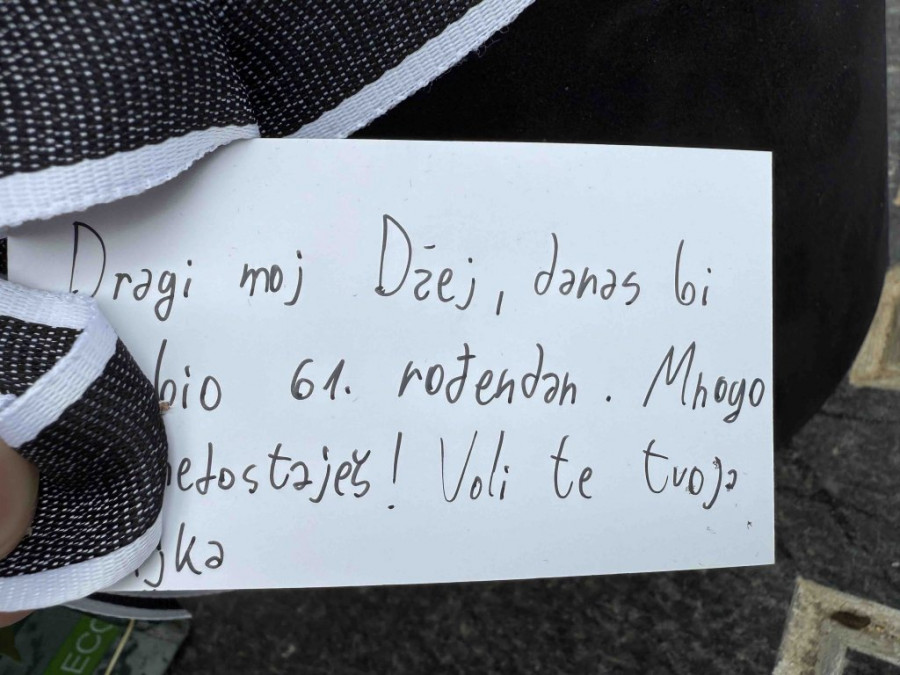 Dragi moj Džej, danas bi
bio 61. rođendan. Mnogo
nedostaješ! Voli te tvoja
ECO